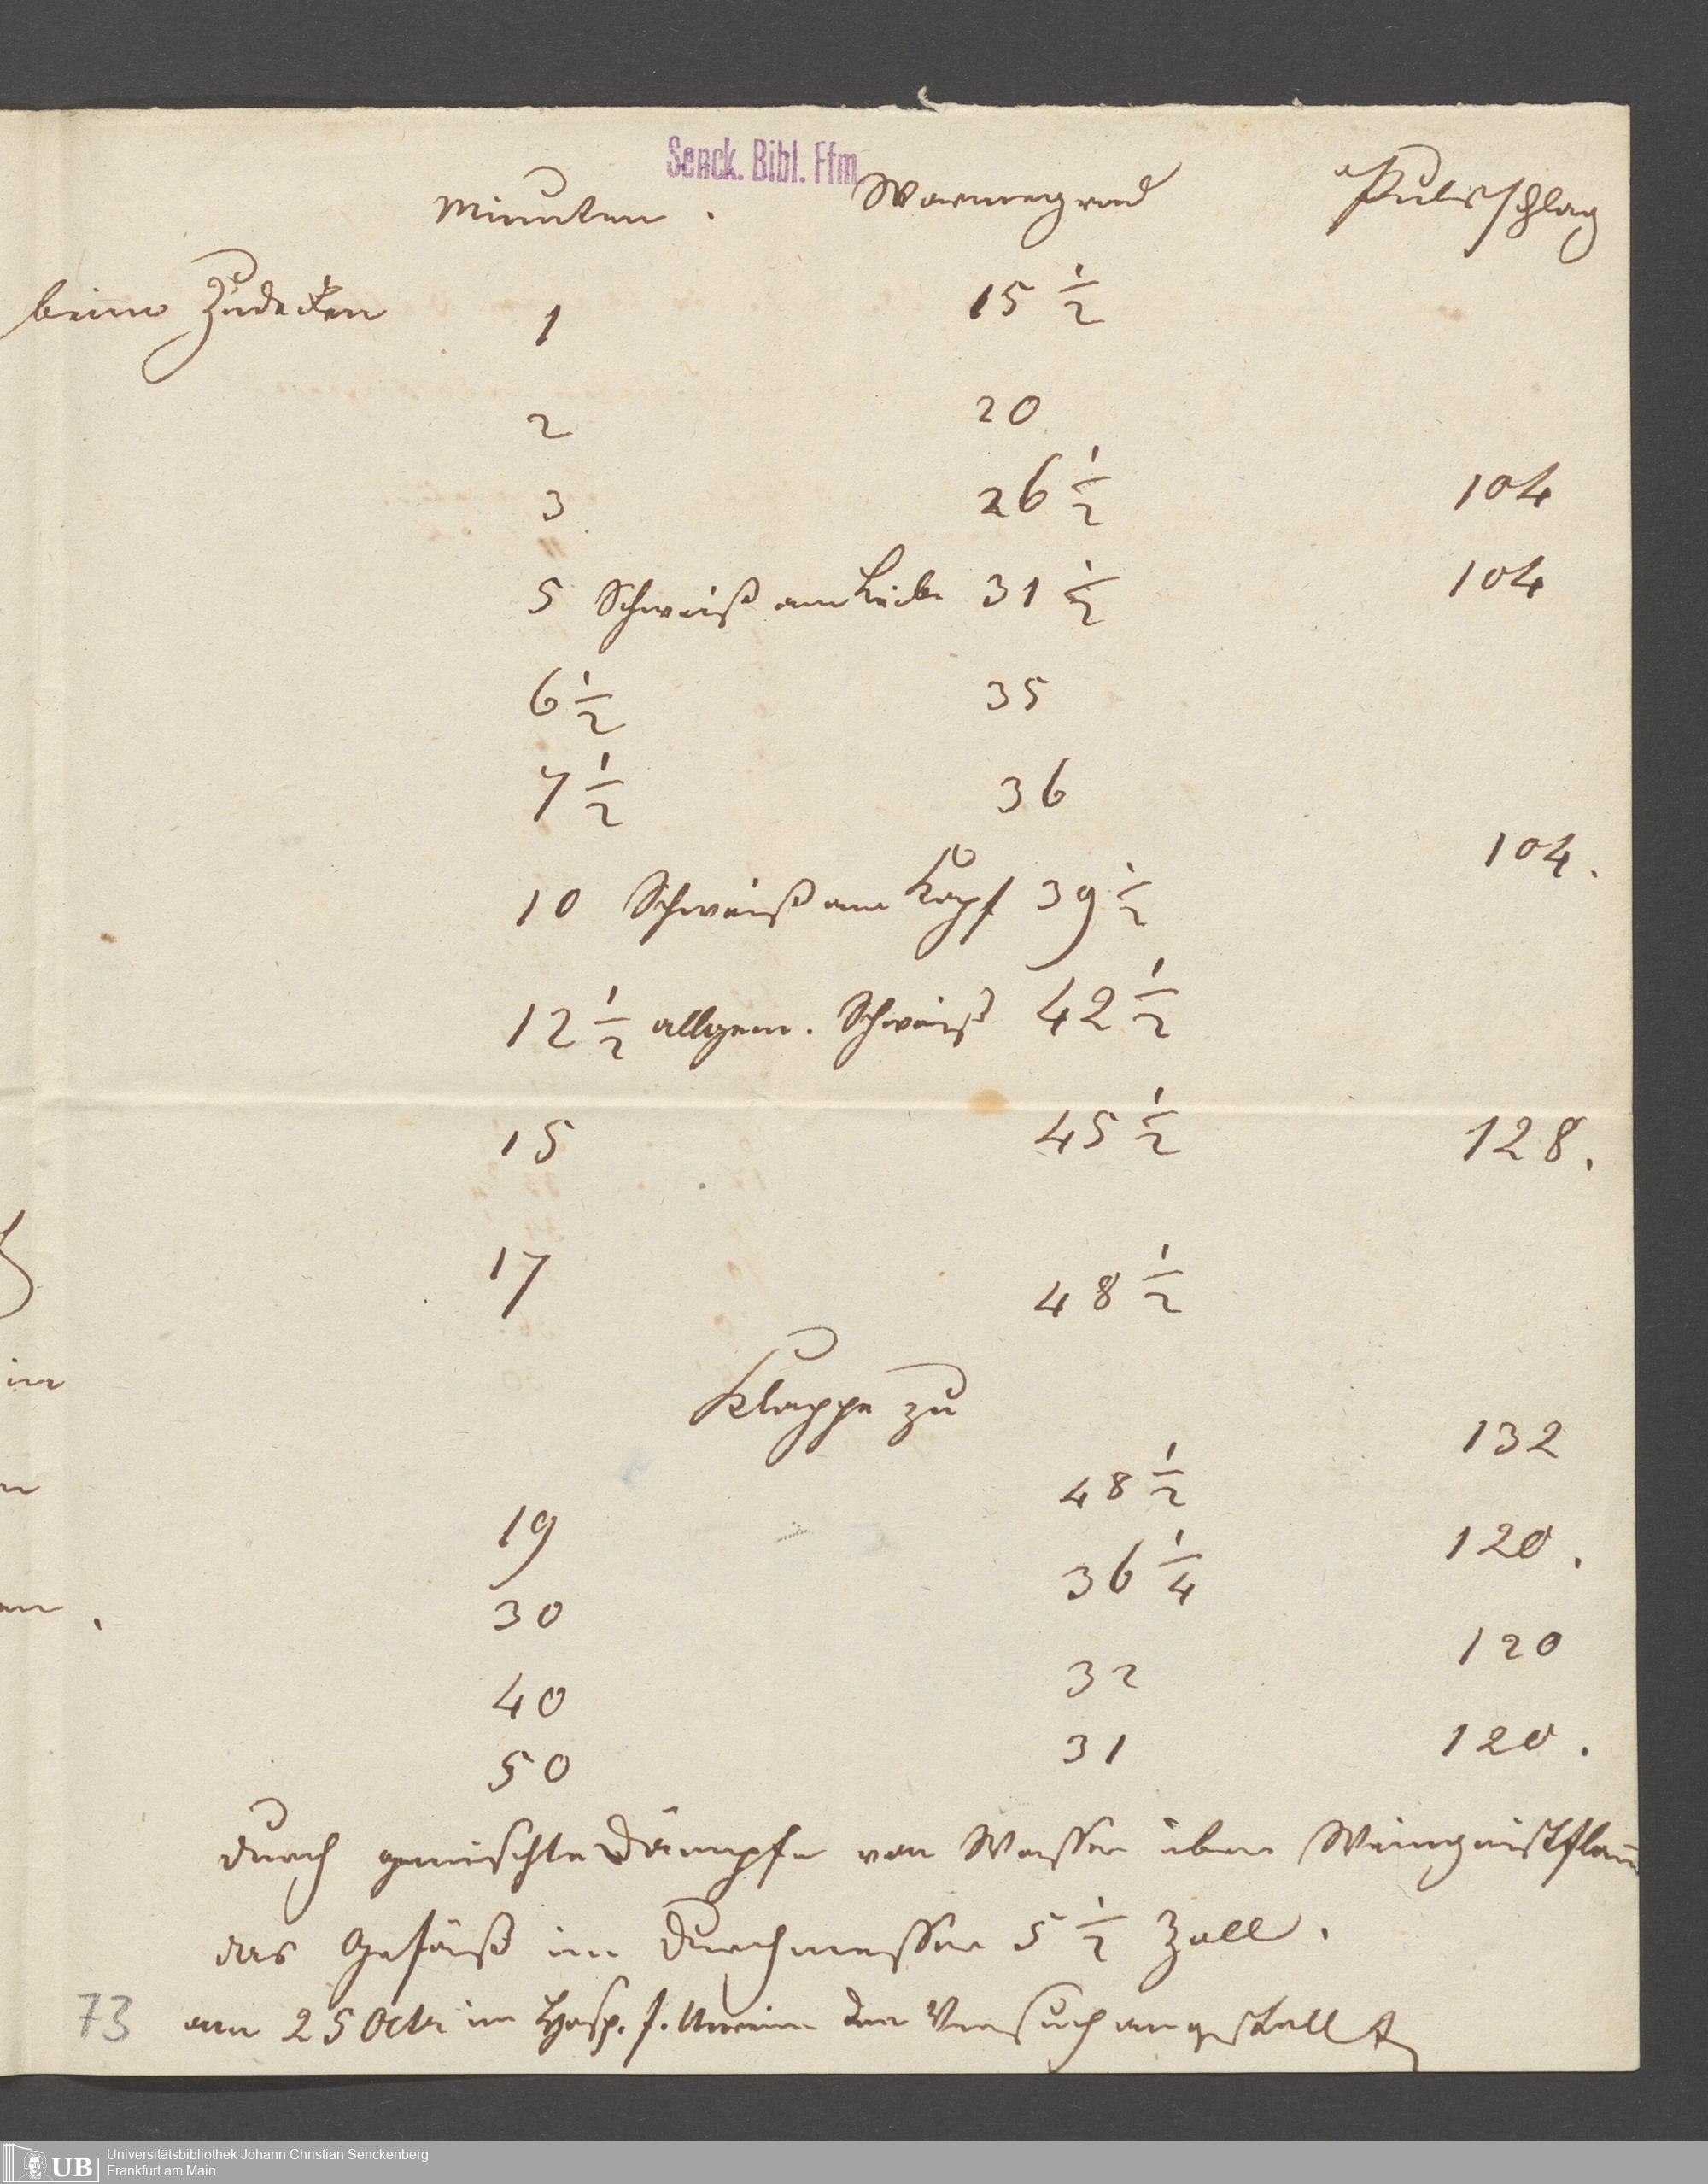 Senck. Bibl. Ffm
Minuten. Warmegrad Pulsschlag
beim Zudecken 1 15 1/2
2 20
3 26 1/2 104
5 Schweiß am Leibe 31 1/2 104
6 1/2 35
7 1/2 36
10 Schweiß am Kopf 39 1/2 104.
12 1/2 allgem. Schweiß 42 1/2
15 45 1/2 128.
17 48 1/2
Klappe zu
19 48 1/2 132
30 36 1/4 120.
40 32 120
50 31 120.
durch gemischte Dämpfe von Wasser über Weingeistflam̅
das Gefäß im Durchmesser 5 1/2 Zoll.
73 am 25 Octr im Hosp. f. den Versuch angestellt
in
UB Universitätsbibliothek Johann Christian Senckenberg
Frankfurt am Main